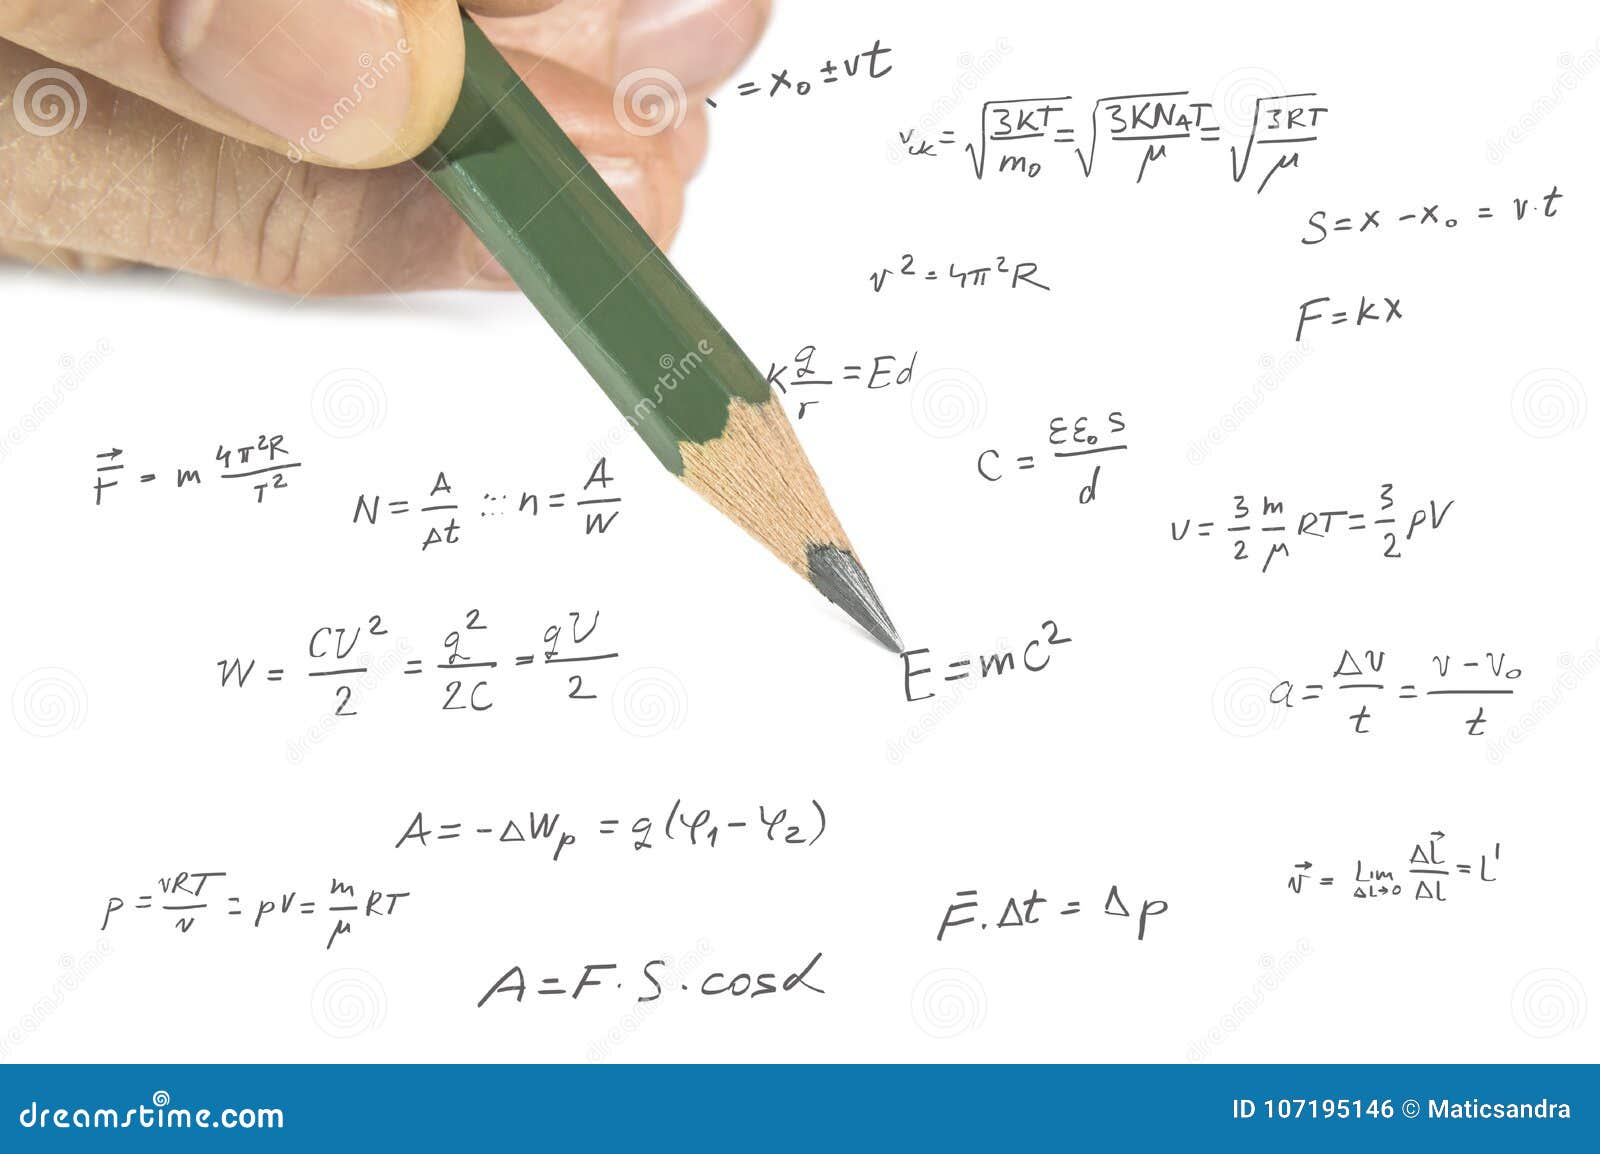 = x₀ ± vt
v꜀ₖ = √(3KT/m₀) = √(3KN_AT/μ) = √(3RT/μ)
S = x - x₀ = v·t
v² = 4π²R
F = kx
k g/r = Ed
C = εε₀s/d
F⃗ = m 4π²R/T²
N = A/Δt ::: n = A/W
υ = 3/2 m/μ RT = 3/2 pV
W = CU²/2 = g²/2C = gU/2
E = mc²
a = Δv/t = v - v₀/t
A = -ΔWₚ = g(φ₁ - φ₂)
v⃗ = Lim ΔL→0 ΔL⃗/ΔL = L'
p = νRT/v = pV = m/μ RT
F̄·Δt = Δp
A = F·S·cosα
dreamstime.com
ID 107195146 © Maticsandra